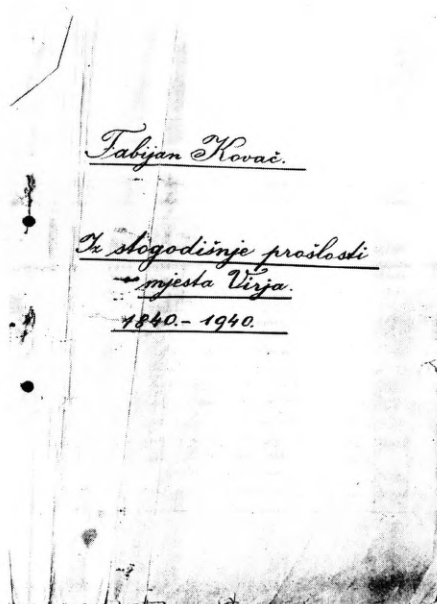 Fabijan Kovač.
Iz stogodišnje prošlosti
mjesta Virja.
1840.-1940.